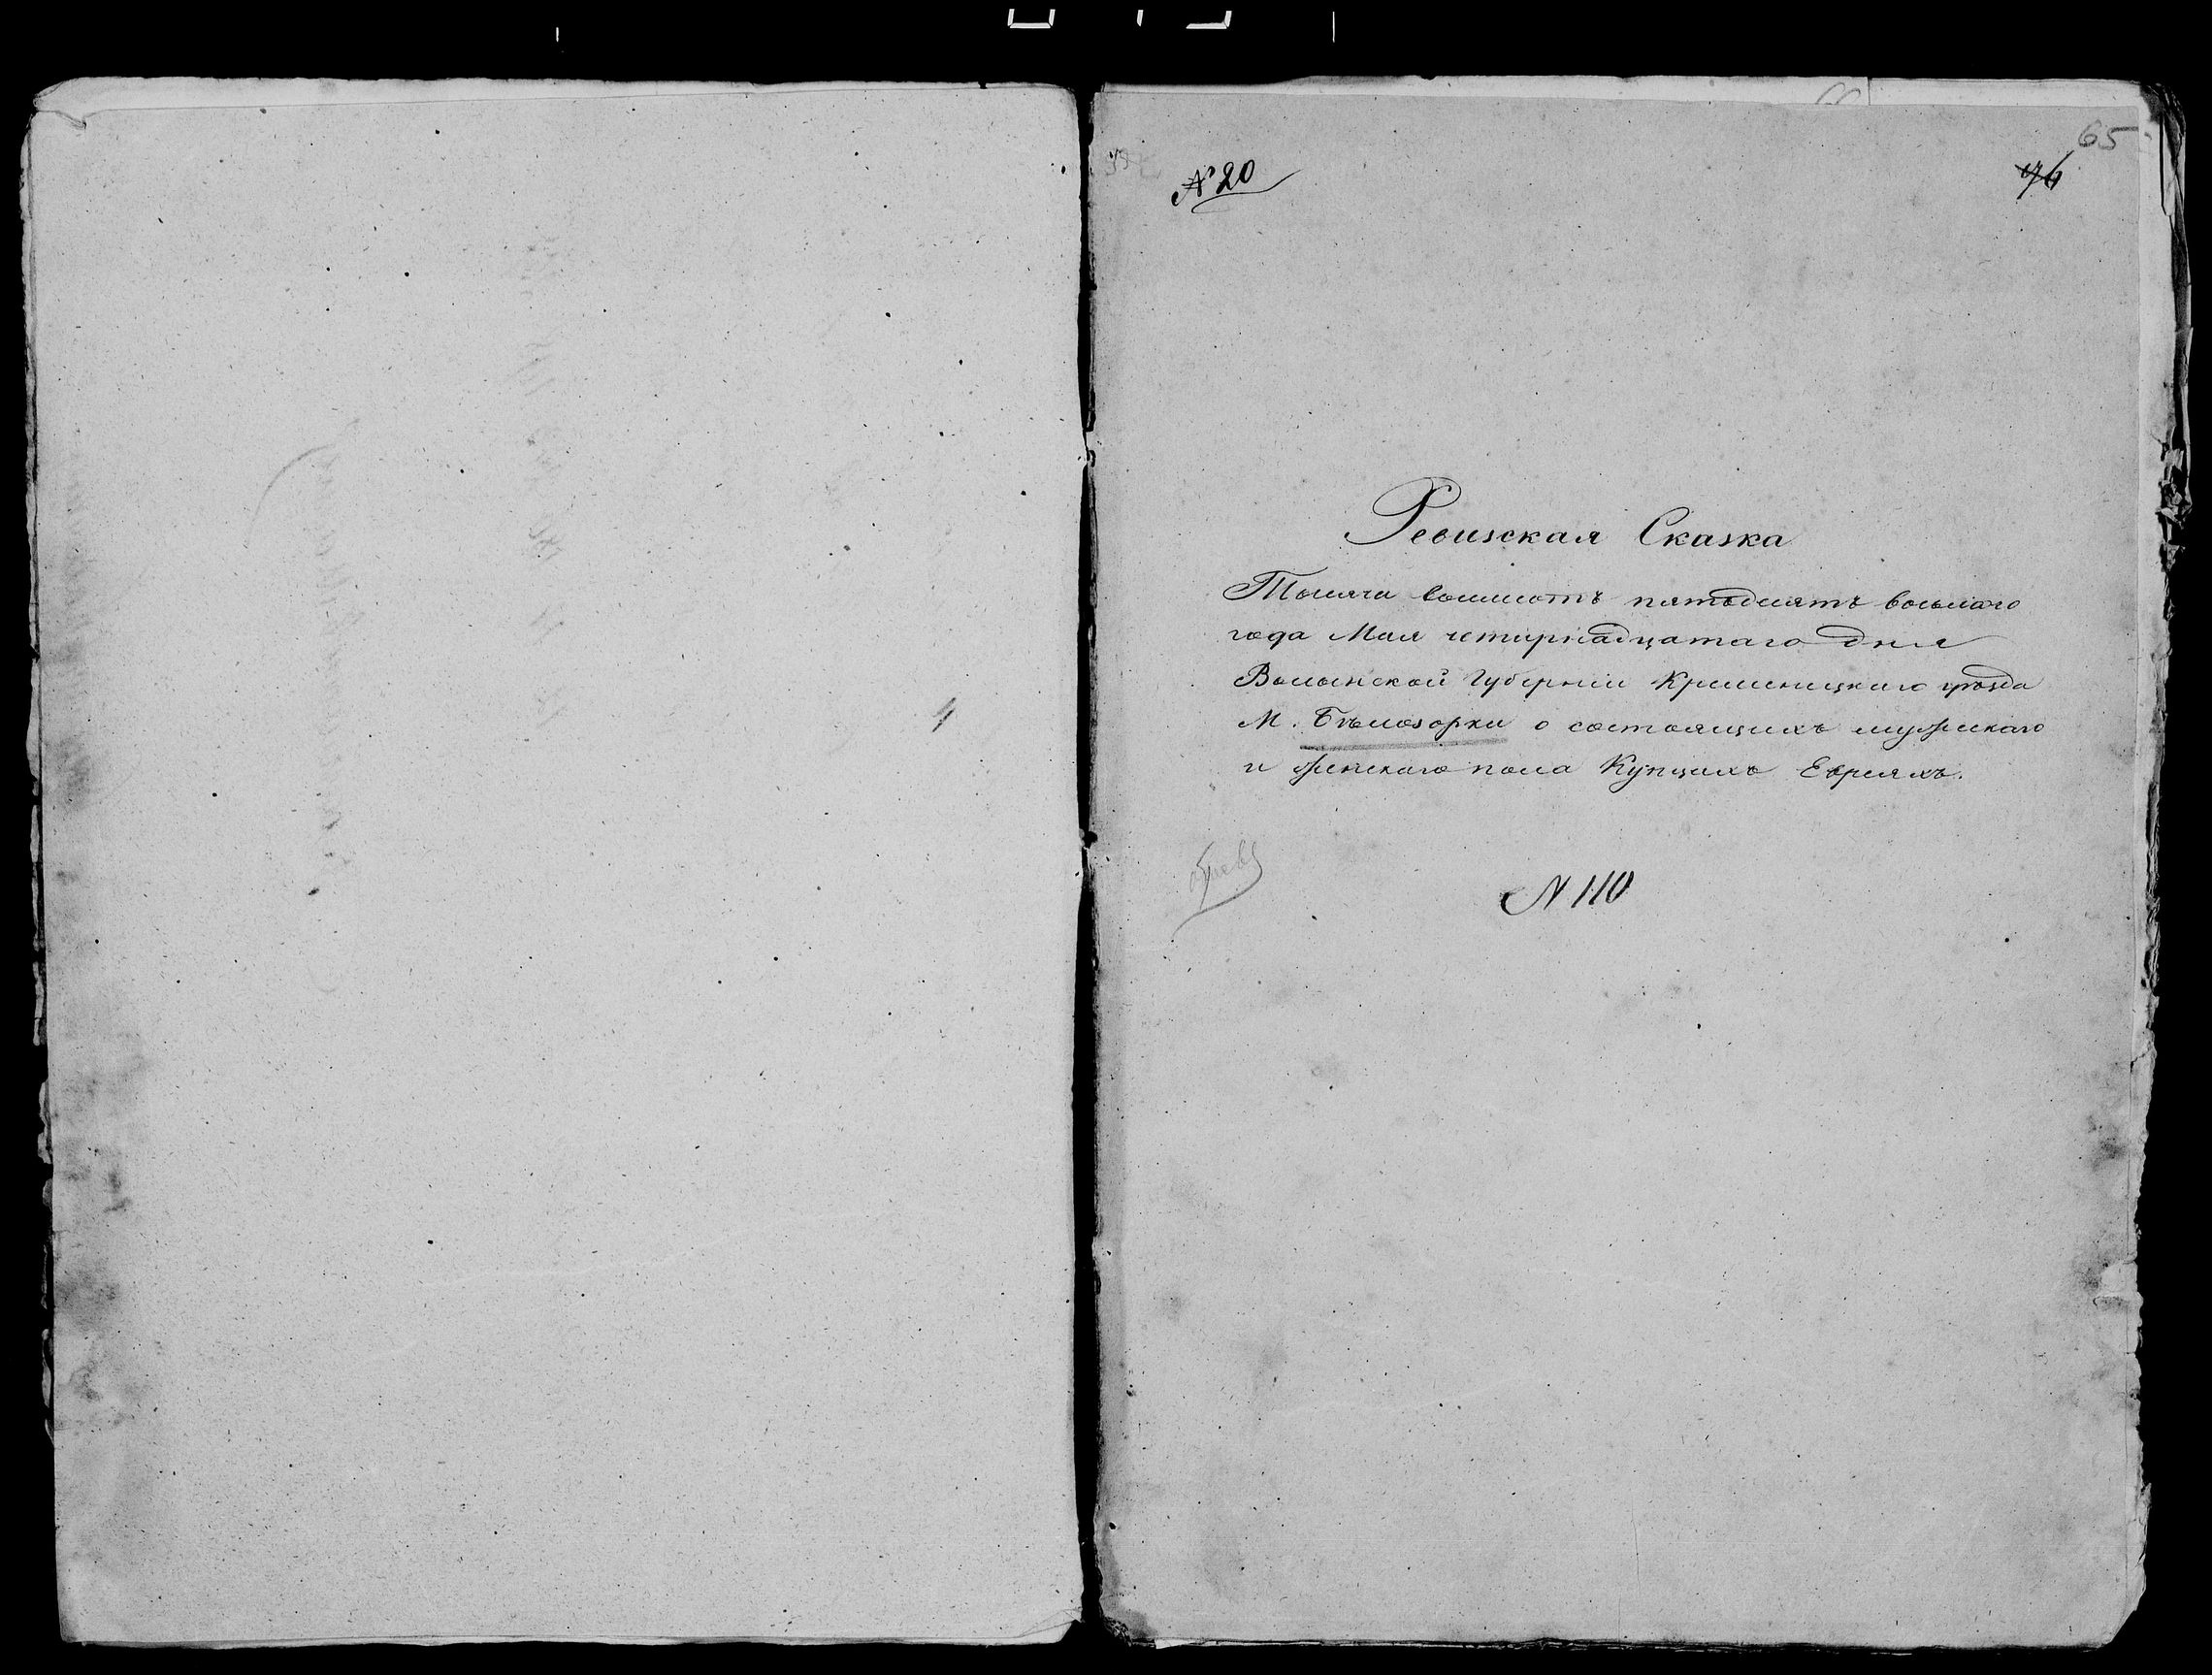 65
№ 20
76
Ревизская Сказка
Тысяча восимсотъ пятьдесятъ восьмаго
года Мая четырнадцатаго дня
Волынской Губерніи Кременецкаго уѣзда
М. Бѣлозорки о состоящихъ мужескаго
и женскаго пола Купцахъ Евреяхъ.
N 110